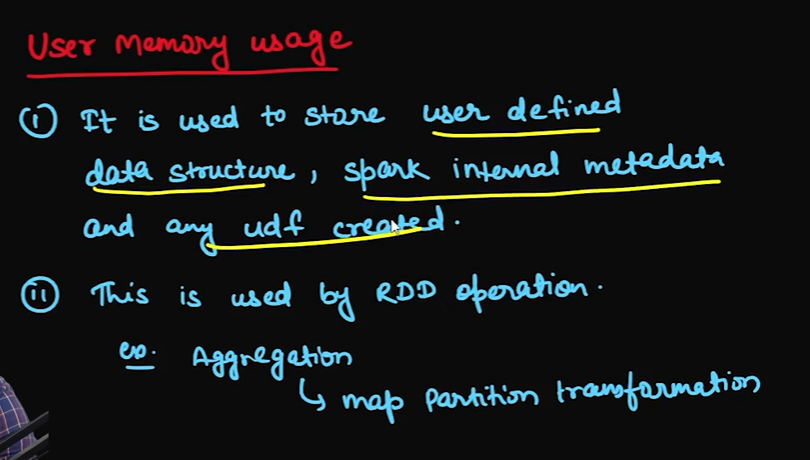 User Memory usage
(i) It is used to store user defined
data structure, spark internal metadata
and any udf created.
(ii) This is used by RDD operation.
ex. Aggregation
↳ map Partition transformation